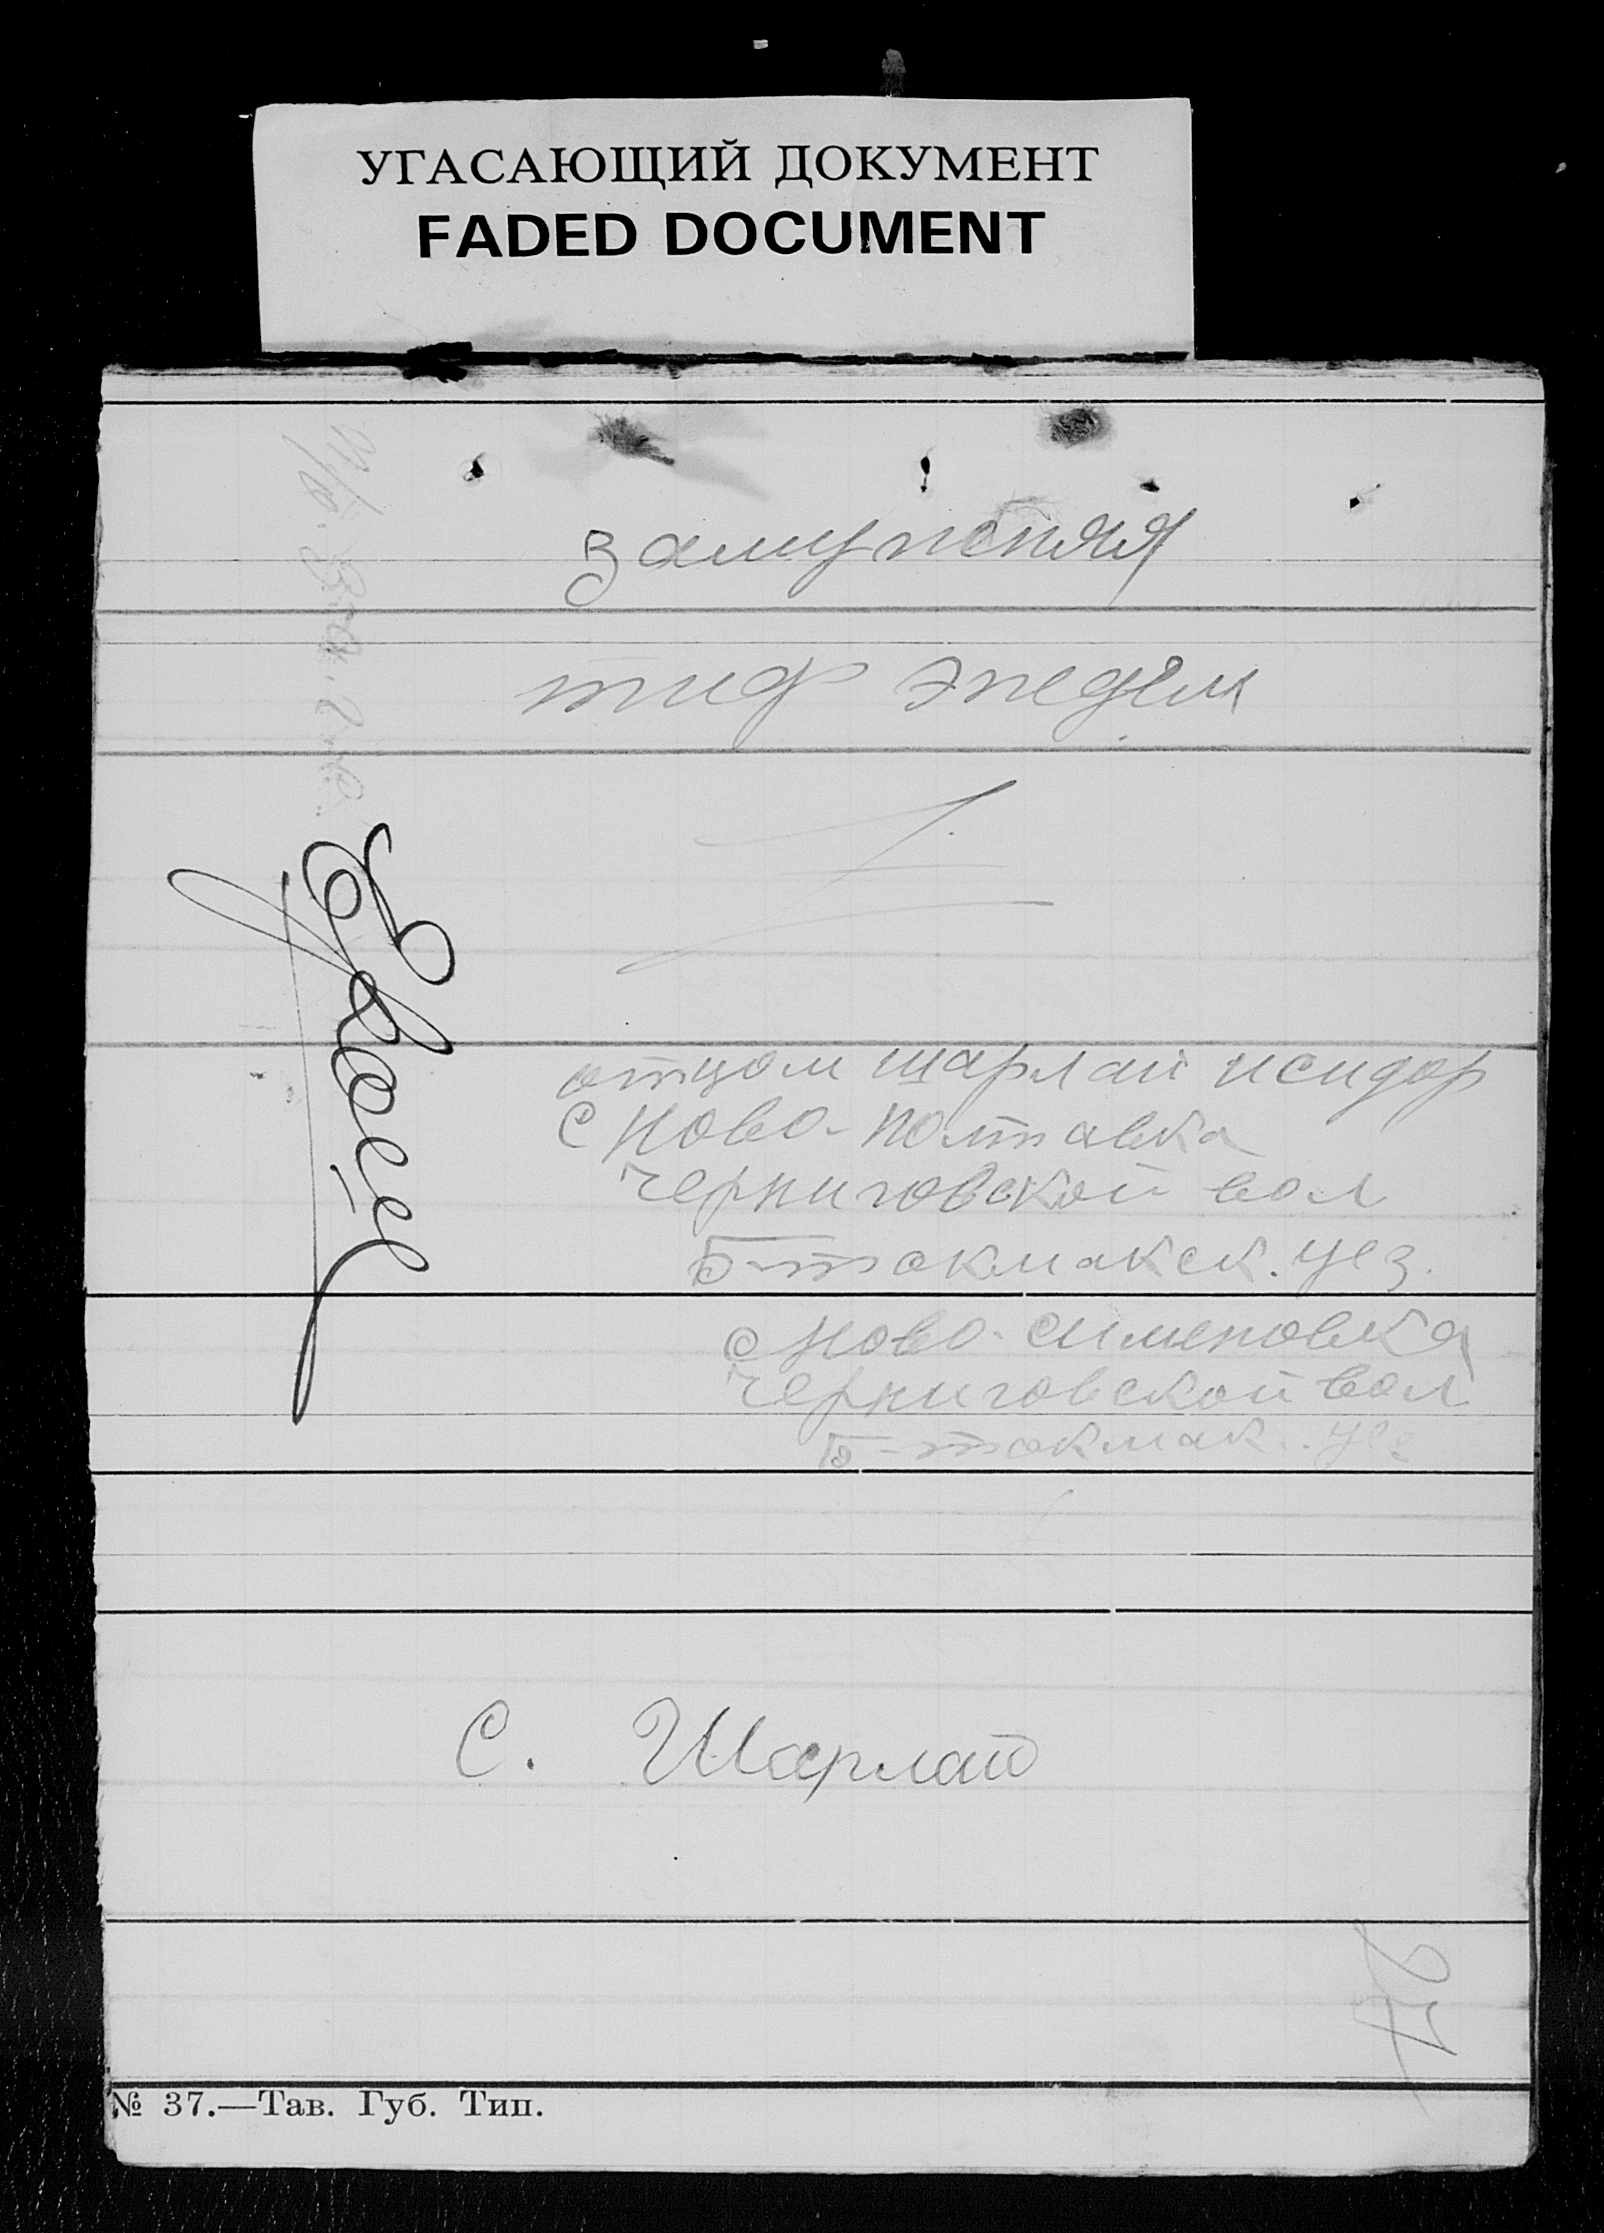 УГАСАЮЩИЙ ДОКУМЕНТ
FADED DOCUMENT
замужняя
тиф эпедем
отцом шарлай исидор
с Ново-полтавка
черниговской вол
Б-токмакск. уез.
с Ново-сименовка
черниговской вол
Б-токмак. уез
С. Шарлай
27
№ 37.—Тав. Губ. Тип.